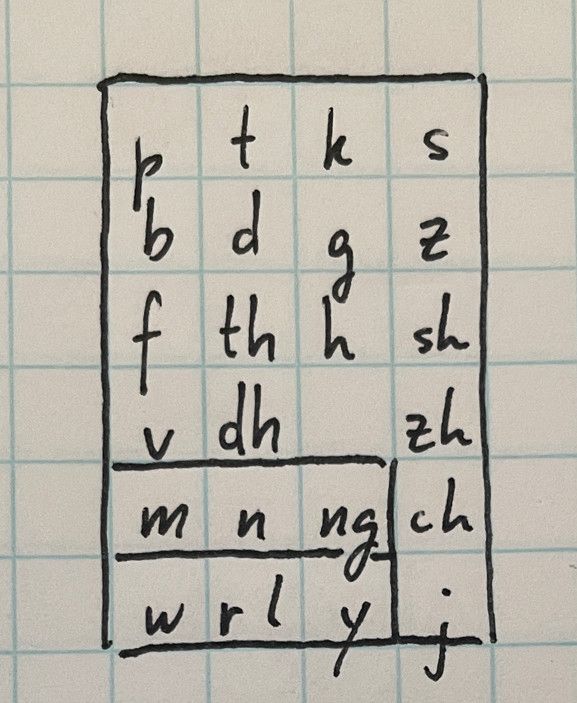 p t k s
b d g z
f th h sh
v dh zh
m n ng ch
w r l y j